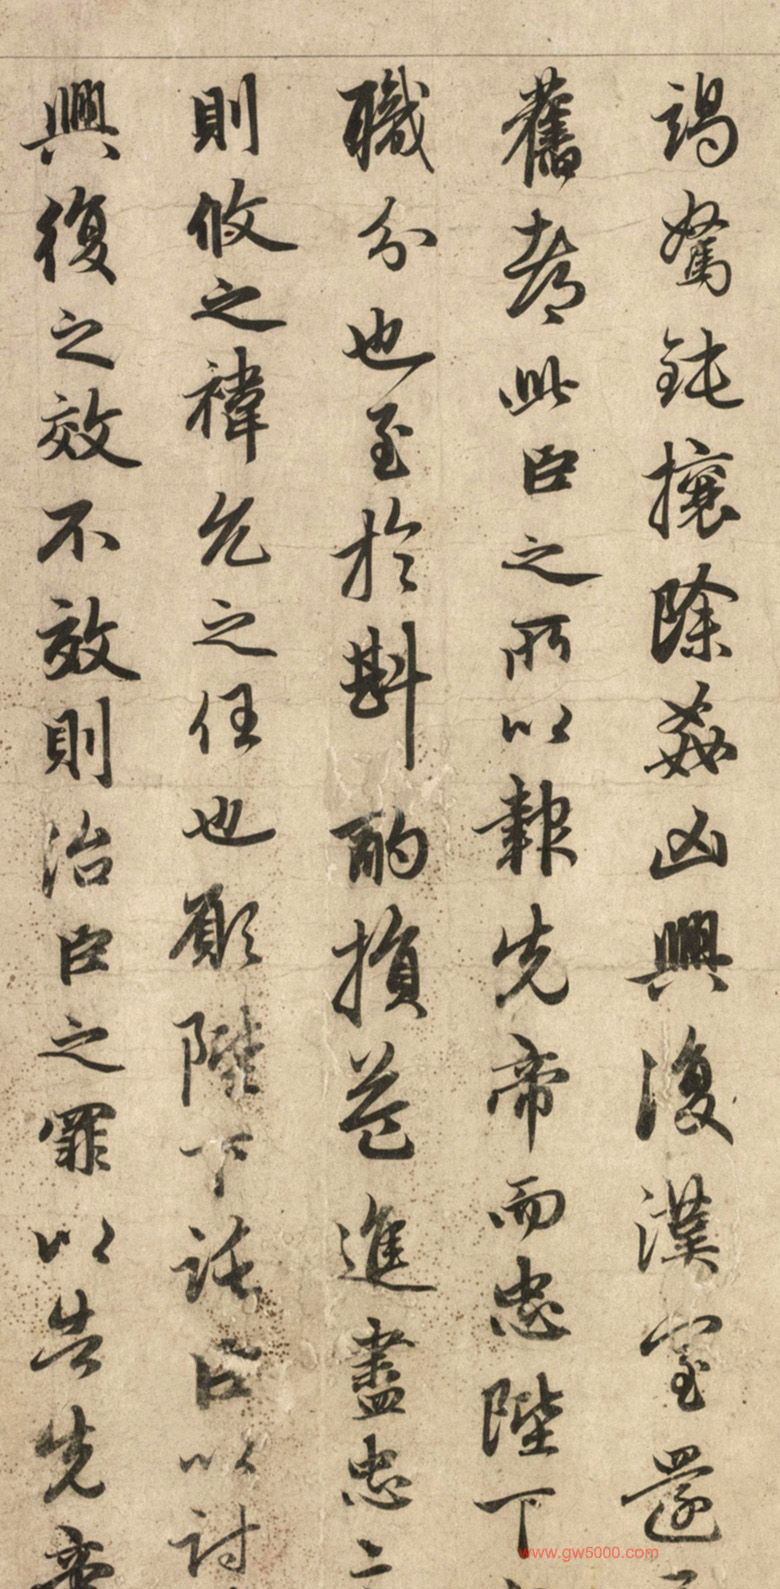 竭駑鈍攘除姦凶興復漢室還
舊都此臣之所以報先帝而忠陛下
職分也至於斟酌損益進盡忠言
則攸之禕允之任也願陛下託臣以討
興復之效不效則治臣之罪以告先帝
www.gw5000.com